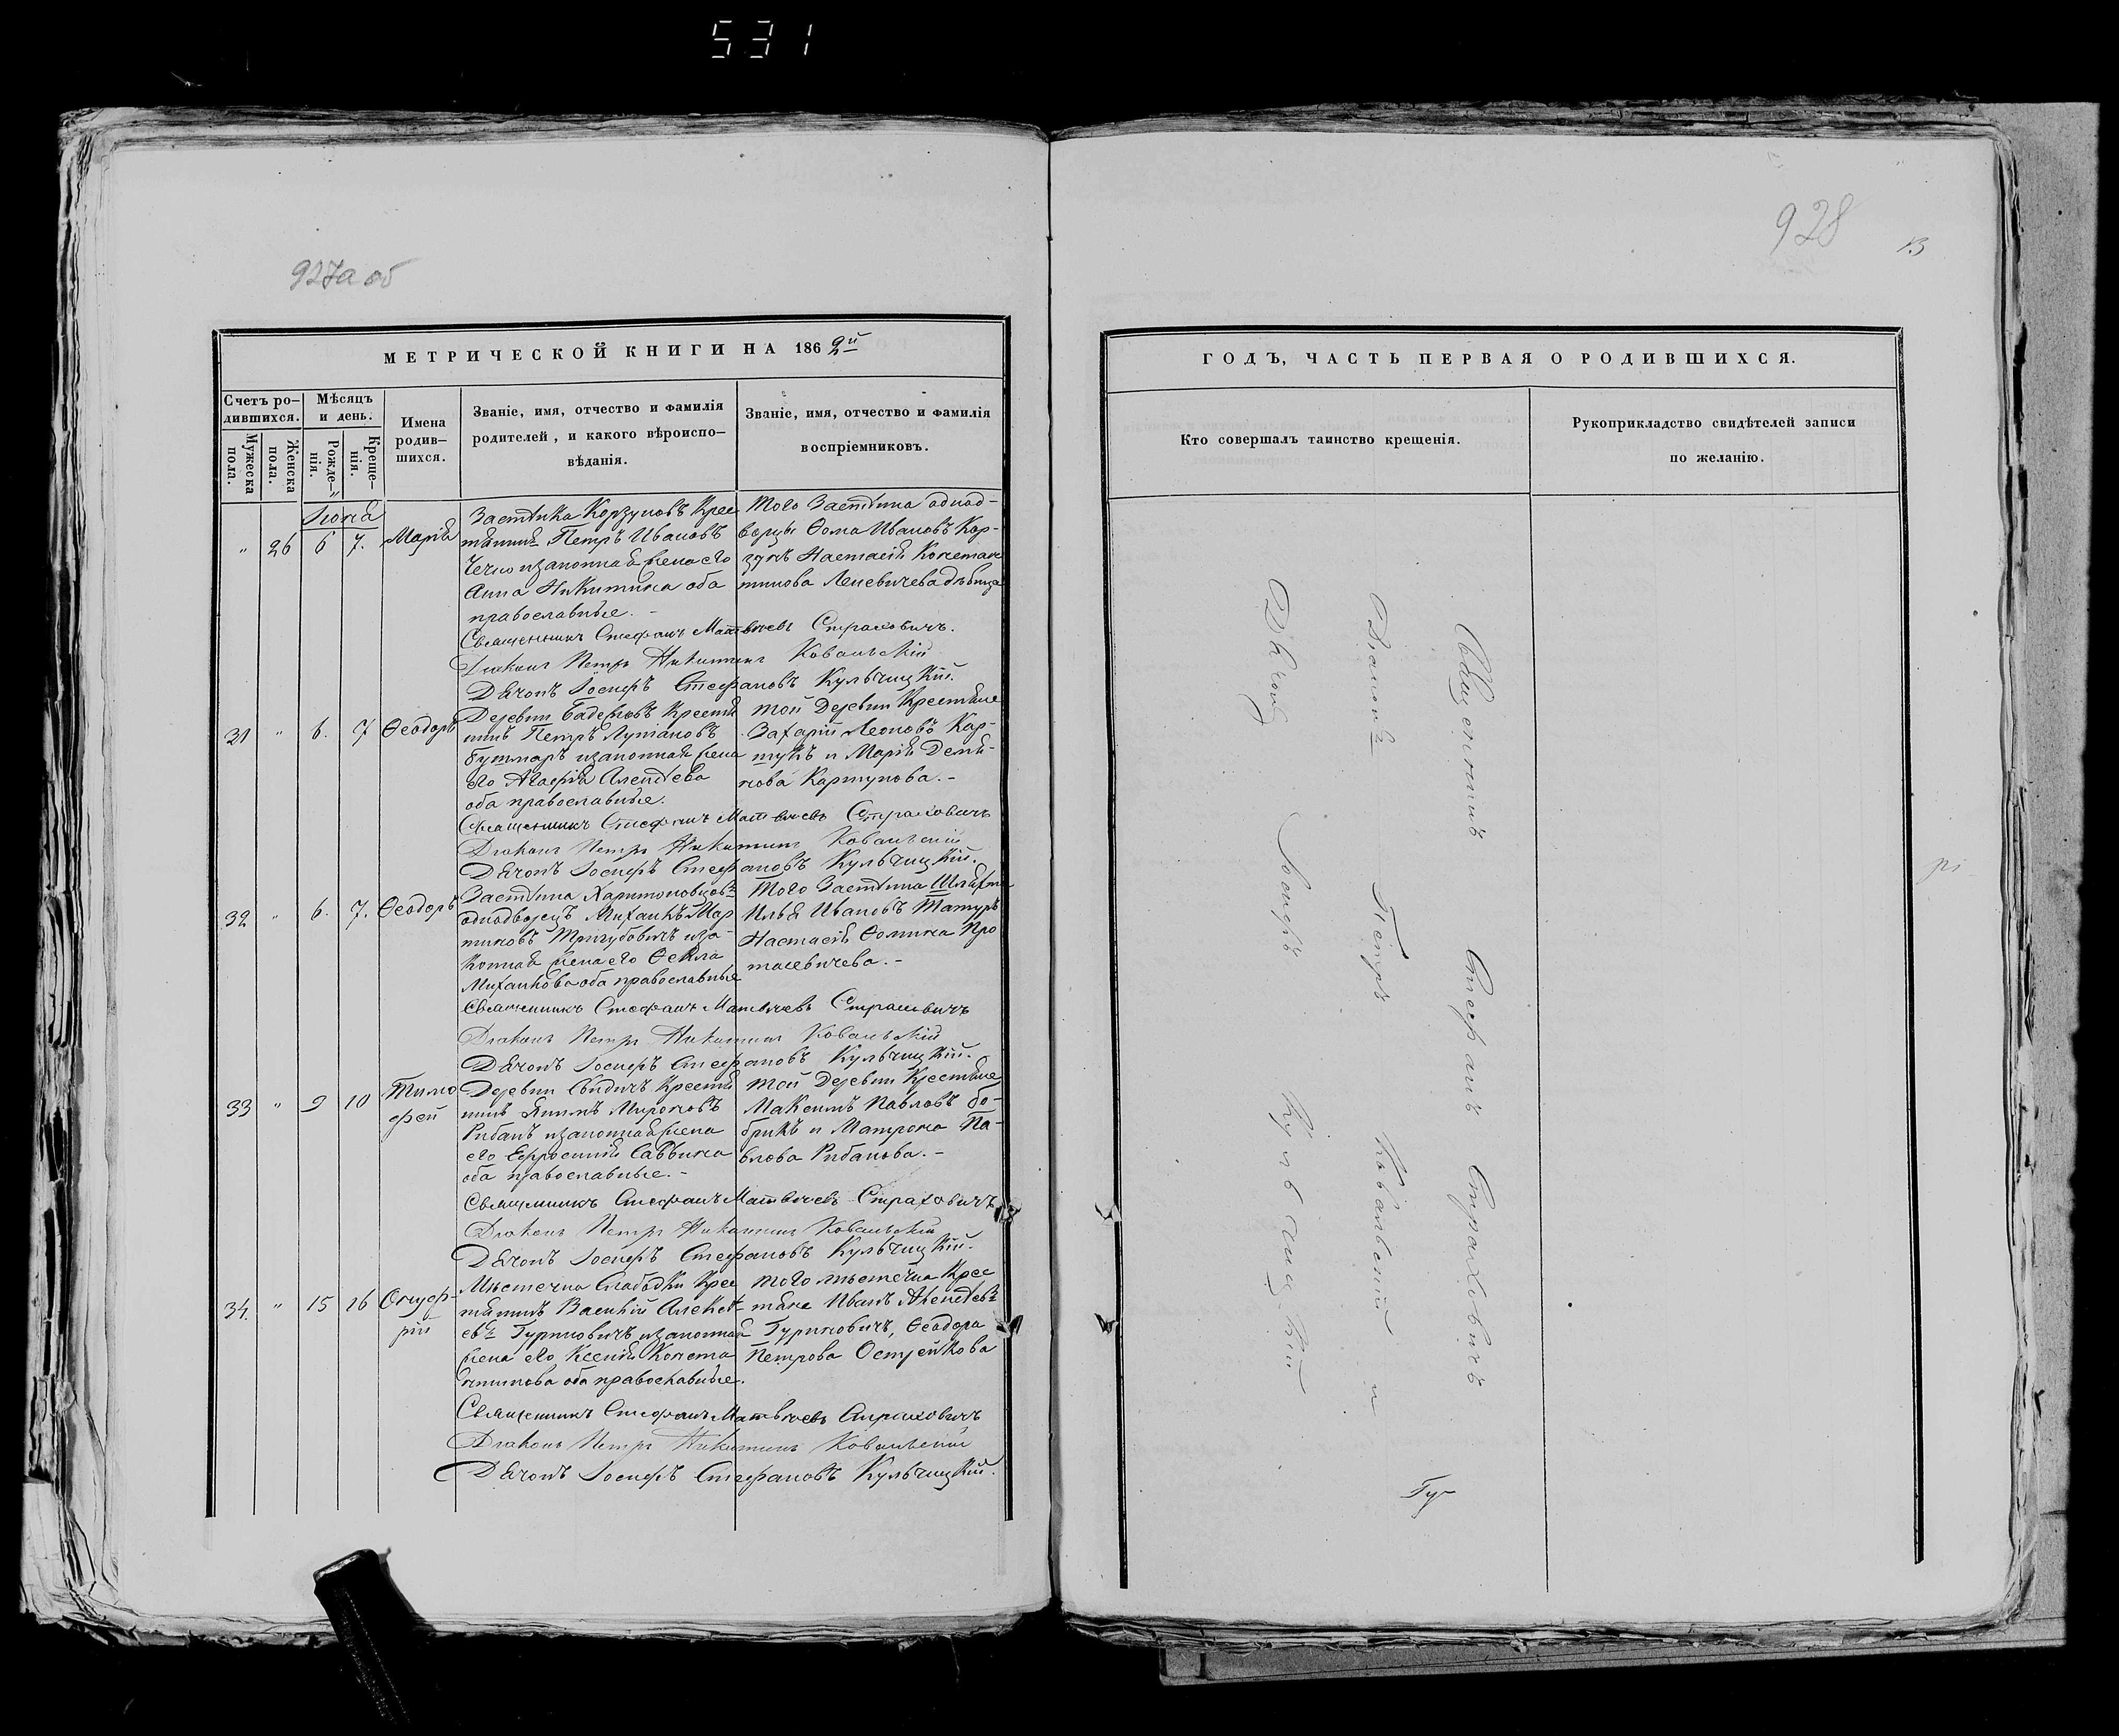 531
927а об
МЕТРИЧЕСКОЙ КНИГИ НА 1862й
Счетъ ро-
дившихся.
Мѣсяцъ
и день.
Мужеска
пола.
Женска
пола.
Рожде-
нія.
Креще-
нія.
Имена
родив-
шихся.
Званіе, имя, отчество и фамилія
родителей, и какого вѣроиспо-
вѣданія.
Званіе, имя, отчество и фамилія
воспріемниковъ.
Іюня
" 26 6 7. Марія
Застѣнка Корзуновъ Крес
тянинъ Петръ Ивановъ
изаконная жена его
Анна Никитина оба
православные.
Того Застѣнка однод-
ворцы Ѳома Ивановъ Кор-
зунъ Настасія Констан
тинова Леневичева дѣвица
Священникъ Стефанъ Матвѣевъ Страховичъ.
Діаконъ Петръ Никитинъ Ковальскій
Дьячокъ Іосифъ Стефановъ Кульчицкій.
31 " 6. 7 Ѳеодоръ
Деревни Крестя
нинъ Петръ
изаконная жена
его Агафія
оба православные.
Той Деревни Крестяне
Захарій Леоновъ Кор-
тунъ и Марія Демя-
нова Картунова.-
Священникъ Стефанъ Матвѣевъ Страховичъ
Діаконъ Петръ Никитинъ Ковальскій
Дьячокъ Іосифъ Стефановъ Кульчицкій.
32 " 6. 7. Ѳеодоръ
Застѣнка Харитоновцовъ
однодворецъ Михаилъ Мар
тиновъ Тригубовичъ иза-
конная жена его Ѳекла
Михайлова оба православные
Того Застѣнка Шляхта
Илья Ивановъ Татуръ
Настасія Ѳомина Про
тасевичева.-
Священникъ Стефанъ Матвѣевъ Страховичъ
Діаконъ Петръ Никитинъ Ковальскій
Дьячокъ Іосифъ Стефановъ Кульчицкій.
33 " 9 10 Тимо
фей
Деревни Свидичъ Крестя
нинъ Якимъ Мироновъ
Рибакъ изаконная жена
его Ефросинія Саввина
оба православные.-
Той Деревни Крестяне
Максимъ Павловъ Бо-
брикъ и Матрона Па-
влова Рибакова.-
Священникъ Стефанъ Матвѣевъ Страховичъ
Діаконъ Петръ Никитинъ Ковальскій
Дьячокъ Іосифъ Стефановъ Кульчицкій.
34. " 15 16 Онуф-
рій
Мѣстечка Слабодки Крес
тянинъ Василій Алексѣ
евъ Гуриновичъ изаконная
жена его Ксенія Конста
нтинова оба православные.
того мѣстечка Крес
тяне Иванъ
Гуриновичъ, Ѳеодора
Петрова Острейкова
Священникъ Стефанъ Матвѣевъ Страховичъ
Діаконъ Петръ Никитинъ Ковальскій
Дьячокъ Іосифъ Стефановъ Кульчицкій.
928
13
ГОДЪ, ЧАСТЬ ПЕРВАЯ О РОДИВШИХСЯ.
Кто совершалъ таинство крещенія.
Рукоприкладство свидѣтелей записи
по желанію.
Священникъ Стефанъ Страховичъ
Діаконъ Петръ Ковальскій и
Дьячокъ Іосифъ Кульчицкій